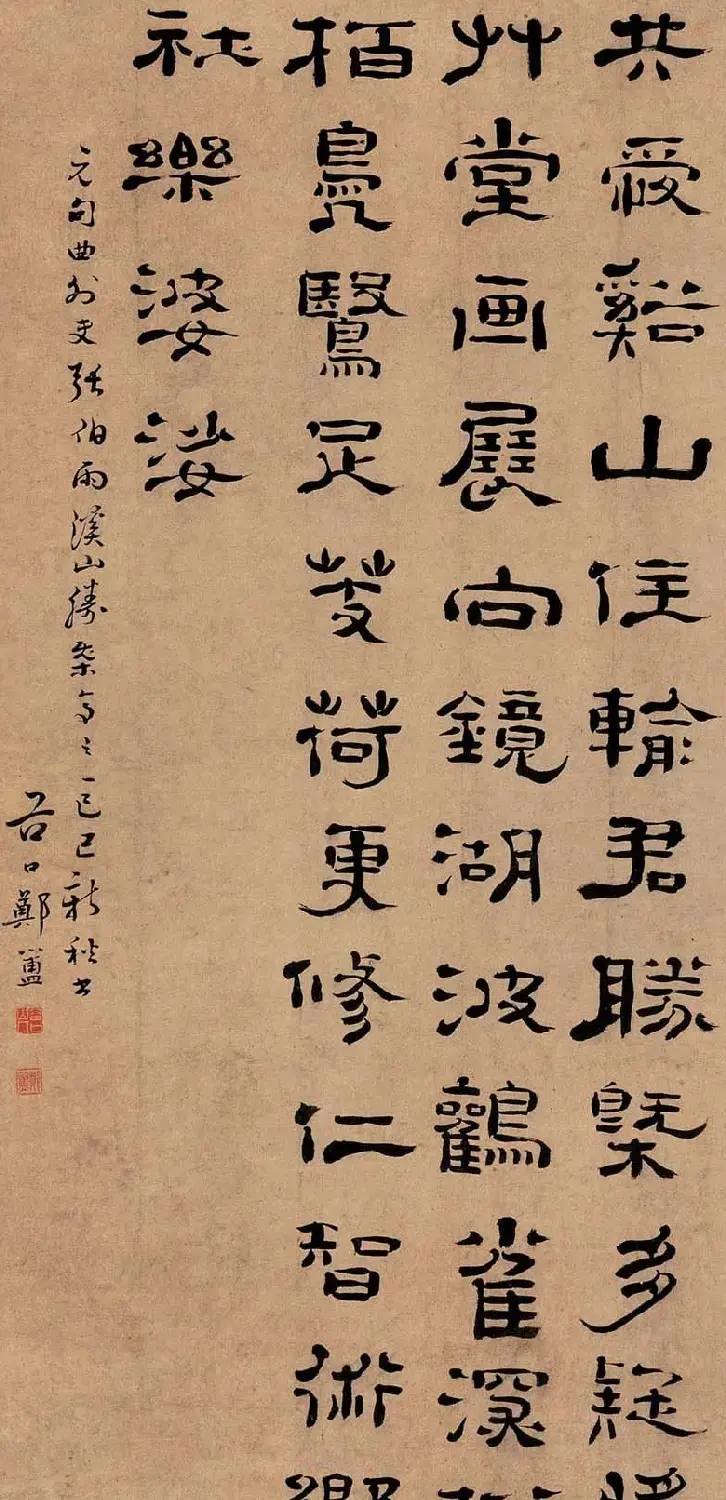 共愛谿山住輸君勝槩多疑
艸堂画展向鏡湖波鸛雀深
栢鳧鷖足芰荷更修仁智術
社樂婆娑
元句曲外史張伯雨溪山勝槩之一己巳新秋書
谷口鄭簠